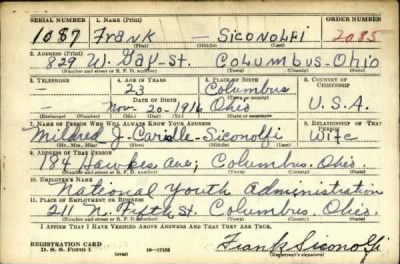 SERIAL NUMBER 1. NAME (Print) ORDER NUMBER
1087 Frank — SICONOLFI 2085
(First) (Middle) (Last)
2. ADDRESS (Print)
829 W. Gay-St. COLUMBUS-OHIO
(Number and street or R. F. D. number) (Town) (County) (State)
3. TELEPHONE 4. AGE IN YEARS 5. PLACE OF BIRTH 6. COUNTRY OF CITIZENSHIP
— 23 Columbus
DATE OF BIRTH (Town or county)
— Nov-20-1916 Ohio U.S.A.
(Exchange) (No.) (Mo.) (Day) (Yr.) (State or country)
7. NAME OF PERSON WHO WILL ALWAYS KNOW YOUR ADDRESS 8. RELATIONSHIP OF THAT PERSON
Mildred J-Carolle-Siconolfi Wife
(Mr., Mrs., Miss) (First) (Middle) (Last)
9. ADDRESS OF THAT PERSON
184 Hawkes ave; Columbus. Ohio.
(Number and street or R. F. D. number) (Town) (County) (State)
10. EMPLOYER'S NAME
National Youth Administration
11. PLACE OF EMPLOYMENT OR BUSINESS
211 N. Fifth St. Columbus Ohio.
(Number and street or R. F. D. number) (Town) (County) (State)
I AFFIRM THAT I HAVE VERIFIED ABOVE ANSWERS AND THAT THEY ARE TRUE.
REGISTRATION CARD
D. S. S. Form 1 (over) Frank Siconolfi
(Registrant's signature)